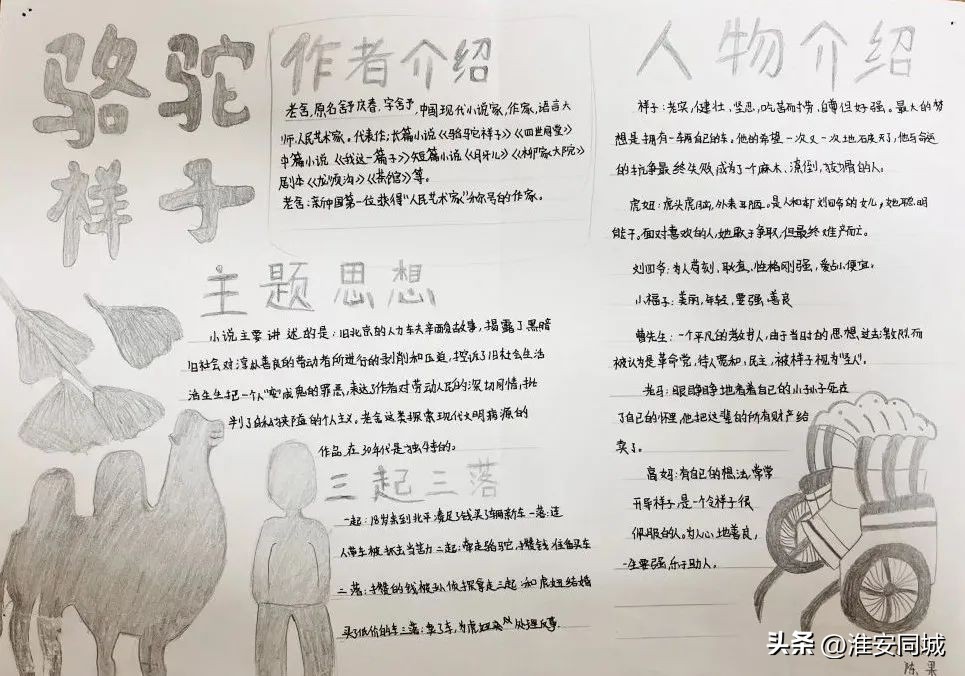 骆驼
样子
作者介绍
老舍,原名舒庆春,字舍予,中国现代小说家,作家,语言大
师,人民艺术家。代表作:长篇小说《骆驼祥子》《四世同堂》
中篇小说《我这一辈子》短篇小说《月牙儿》《柳家大院》
剧本《龙须沟》《茶馆》等。
老舍:新中国第一位获得“人民艺术家”称号的作家。
主题思想
小说主要讲述的是:旧北京的人力车夫辛酸故事,揭露了黑暗
旧社会对淳朴善良的劳动者所进行的剥削和压迫,控诉了旧社会生活
活生生把一个人“变”成鬼的罪恶,表达了作者对劳动人民的深切同情,批
判了自私狭隘的个人主义。老舍这类探索现代文明病源的
作品在30年代是独特的。
三起三落
一起:18岁来到北平凑足了钱买了辆新车一落:连
人带车被抓去当苦力二起:牵走骆驼,攒钱准备买车
二落:攒的钱被孙侦探拿走三起:和虎妞结婚
买了低价的车三落:卖了车,为虎妞处理丧事.
人物介绍
祥子:老实,健壮,坚忍,吃苦而耐劳,自尊但好强。最大的梦
想是拥有一辆自己的车。他的希望一次又一次地破灭了,他与命运
的抗争最终失败成为了个麻木、潦倒,狡猾的人。
虎妞:虎头虎脑,外表丑陋。是人和车厂刘四爷的女儿,她聪明
能干。面对喜欢的人,她敢于争取,但最终难产而亡。
刘四爷:为人苛刻、耿直、性格刚强,爱占小便宜,
小福子:美丽,年轻,要强,善良
曹先生:一个平凡的教书人,由于当时的思想过去激烈而
被认为是革命党,待人宽和,民主,被样子视为“圣人”。
老马:眼睁睁地看着自己的小孙子死在
了自己的怀里,他把这辈的所有财产给
卖了。
高妈:有自己的想法,常常
开导样子,是一个令样子很
佩服的人。为人心地善良,
一生要强,乐于助人。
头条 @淮安同城
陈果